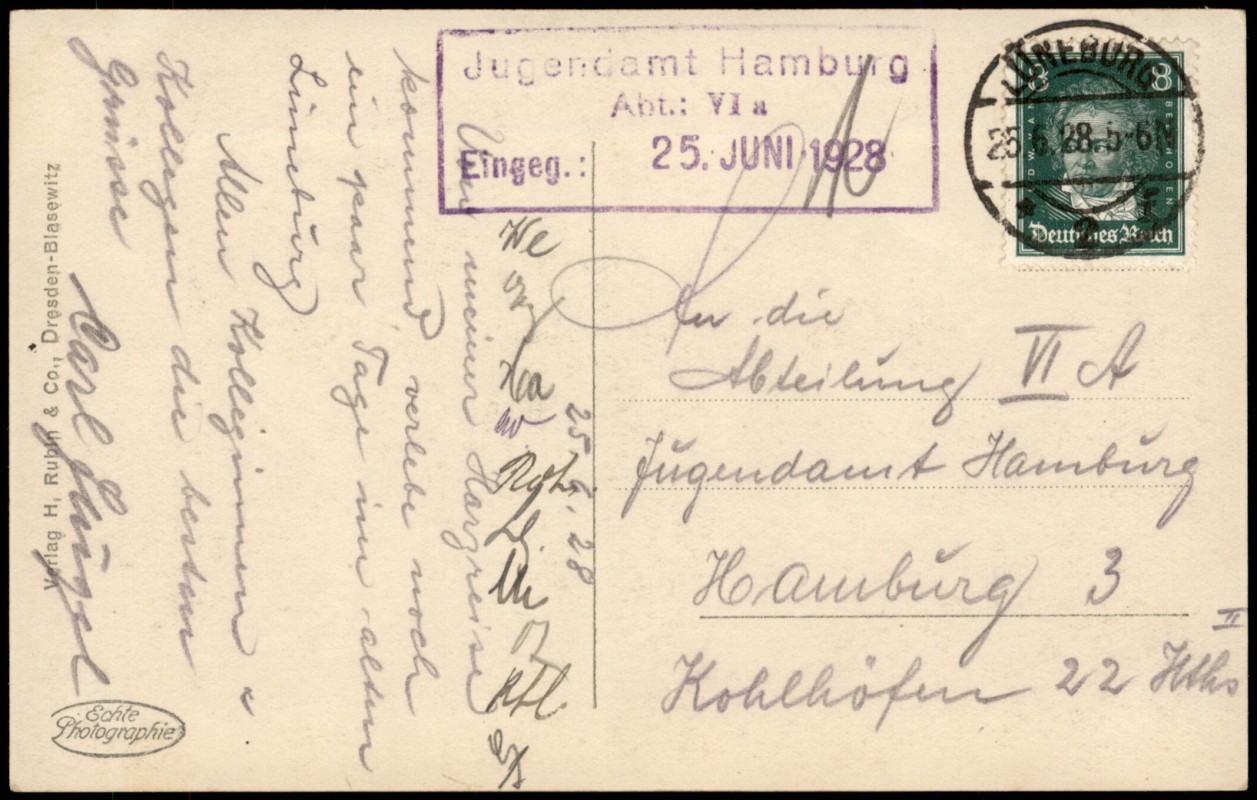 Jugendamt Hamburg
Abt.: VI a
Eingeg.: 25. JUNI 1928
LÜNEBURG
25.6.28. 5-6N
8 8
Deutsches Reich
An die
Abteilung VI A
Jugendamt Hamburg
Hamburg 3
Kohlhöfen 22 Hths II
25.6.28
Von meiner Harzreise
kommend, verlebe noch
ein paar Tage im alten
Lüneburg
Allen Kolleginnen u
Kollegen die besten
Grüsse
Carl
Verlag H. Rubin & Co., Dresden-Blasewitz
Echte
Photographie